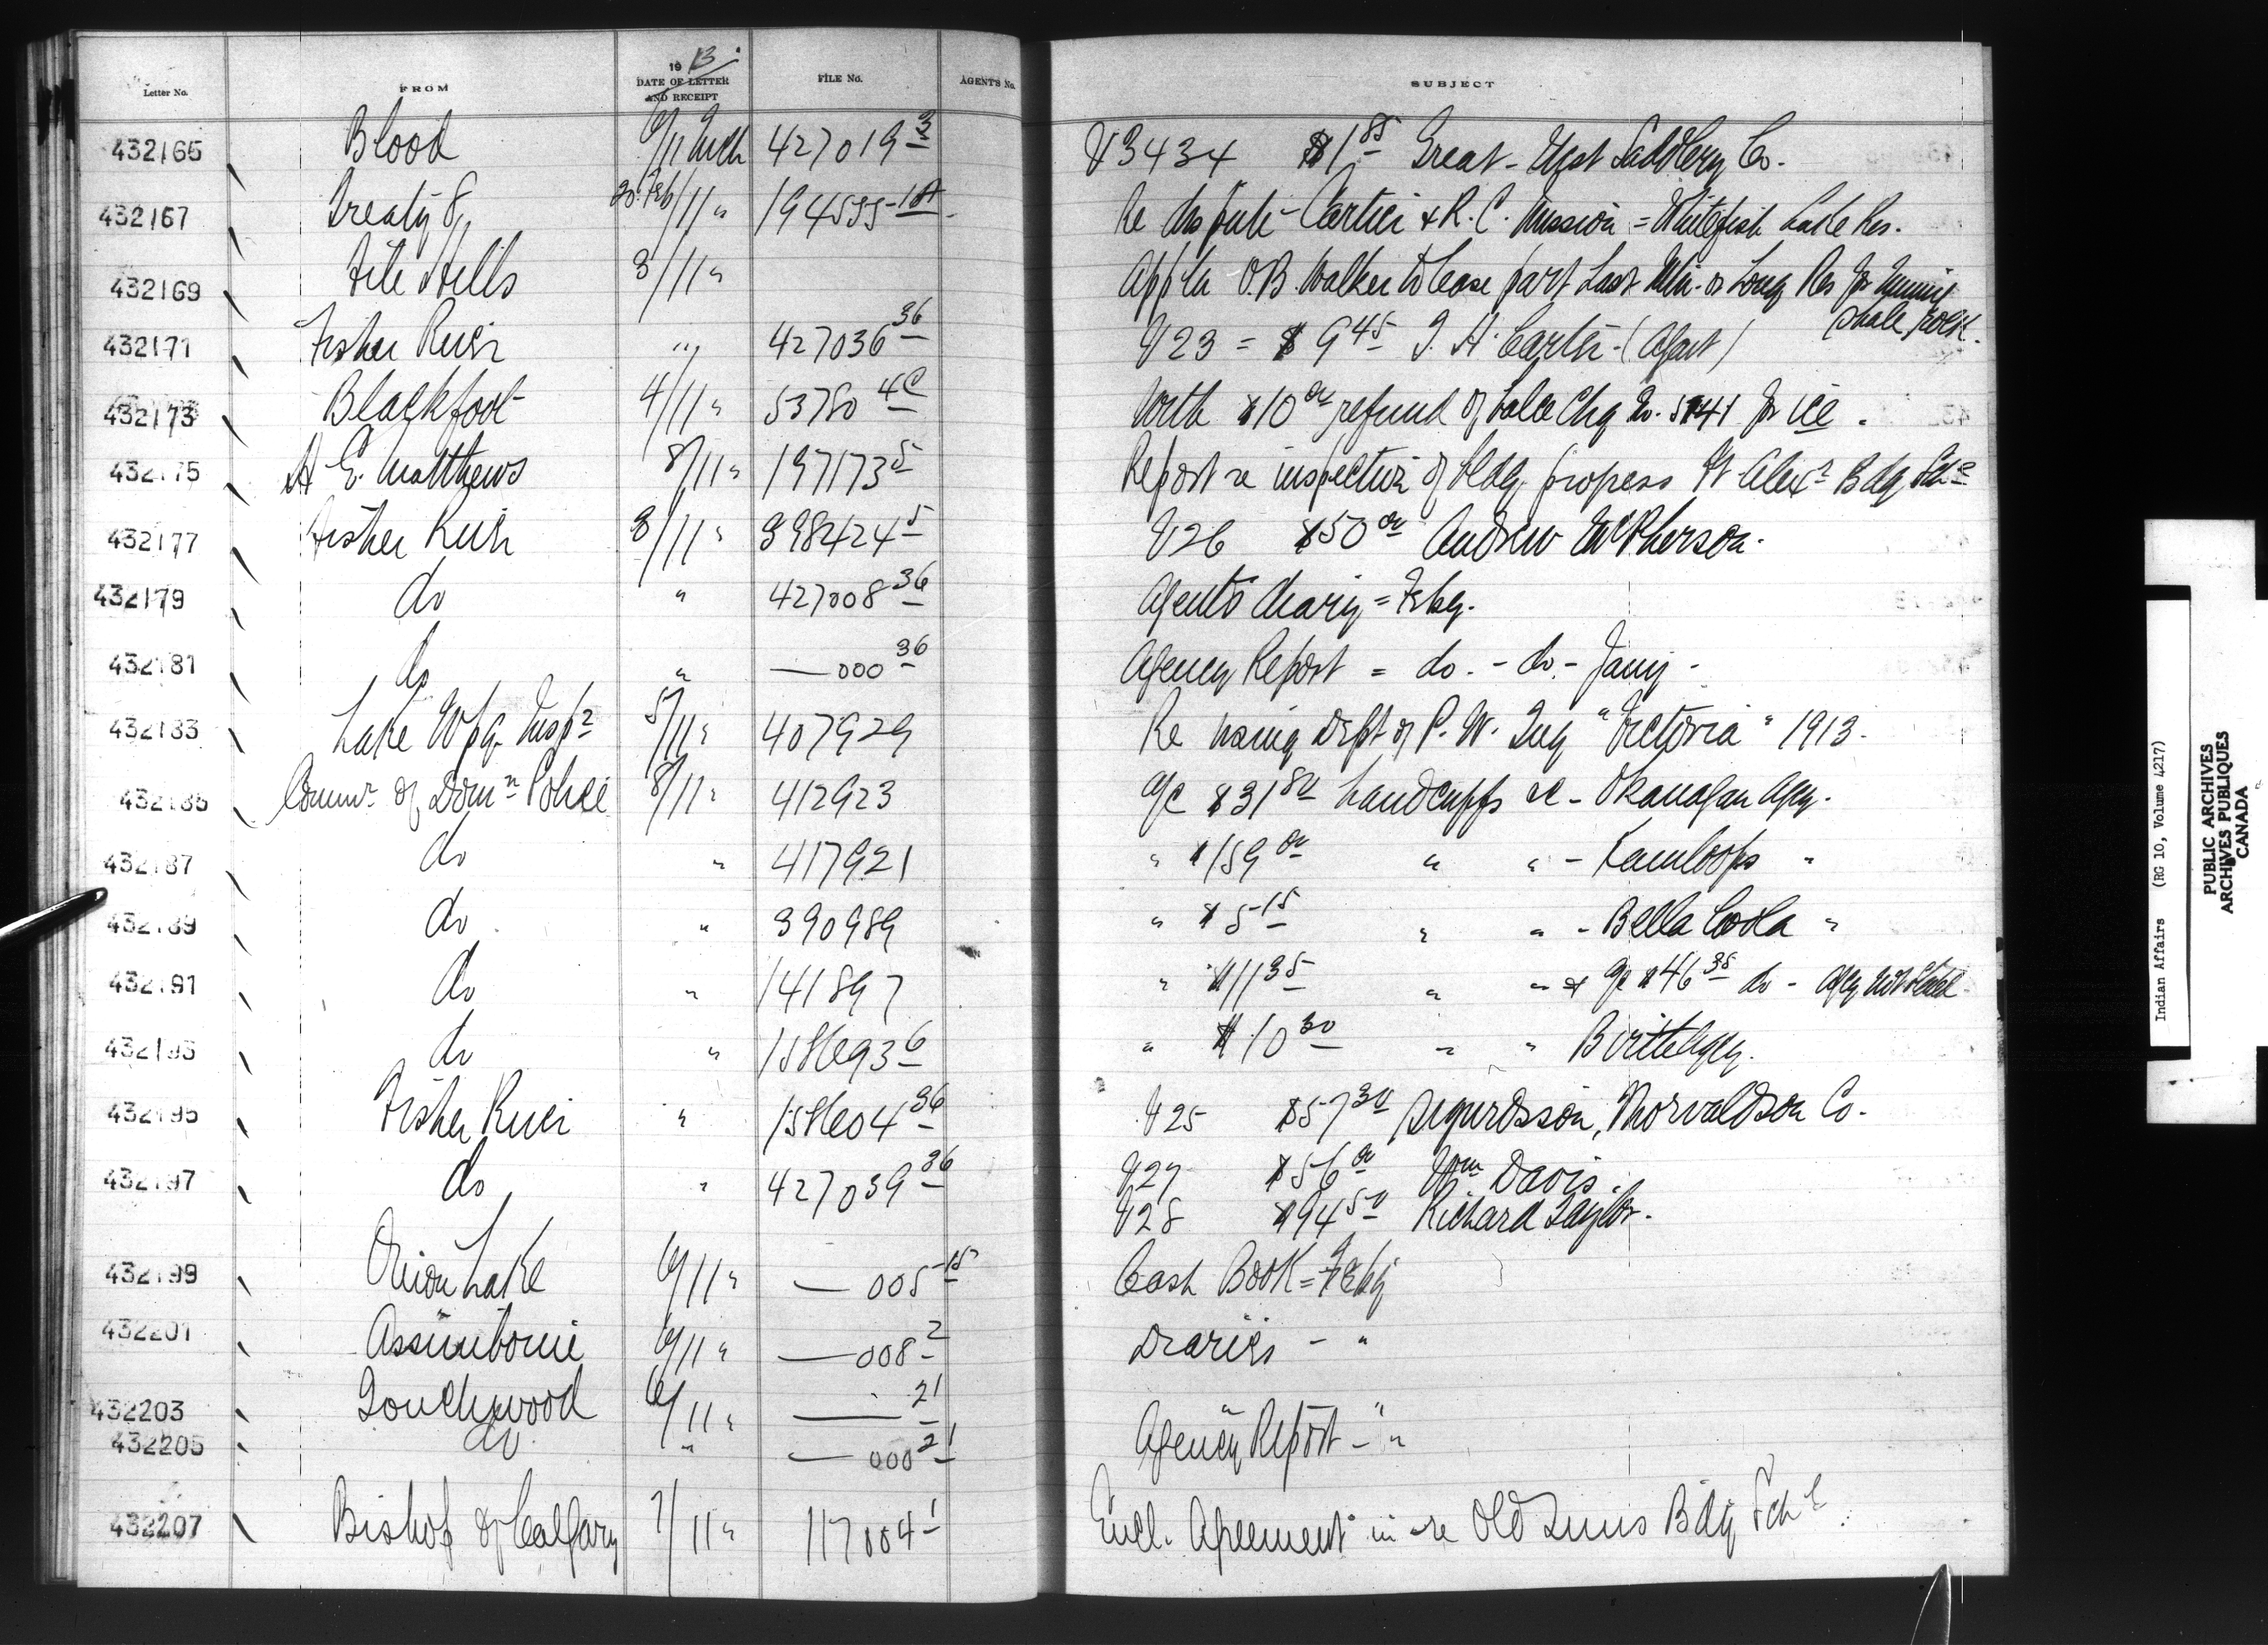 Letter No. FROM 1913 DATE OF LETTER AND RECEIPT FILE No. AGENT'S No. SUBJECT
432165 Blood 6/11 Mch 427019-3 V3434 $1.85 Great-West Saddlery Co.
432167 Treaty 8 20 Feb/11 " 194535-1A Re dispute - Cartier & R.C. Mission = Whitefish Lake Res.
432169 File Hills 3/11 " Appln O.B. Walker to lease part Last Mtn. or Long Res for
shale rock.
432171 Fisher River " 427036-36 V23 = $9.45 T.H. Carter - (Agent)
432173 Blackfoot 4/11 " 53780-4C With $10.00 refund of balce Chq No. 5141 for ice.
432175 A E. Matthews 8/11 " 197173-5 Report re inspection of bldg progress Ft Alexr Bdg Schl
432177 Fisher River 3/11 " 398424-5 V26 $50.00 Andrew McPherson.
432179 do " 427008-36 Agents diary = Feby.
432181 do " — 000-36 Agency Report = do. - do - Jany -
432183 Lake Wpg. Insp. 5/11 " 407929 Re using Dept of P.W. Tug "Victoria" 1913.
432185 Commr of Domn Police 8/11 " 412923 a/c $31.80 handcuffs &c - Okanagan Agcy.
432187 do " 417921 " $159.00 " " - Kamloops "
432189 do " 390989 " $5.15 " " - Bella Coola "
432191 do " 141897 " $11.35 " " & a/c $46.38 do - Agcy not stated
432193 do " 158693-6 " $10.30 " " Birtle Agcy.
432195 Fisher River " 158604-36 V25 $57.30 Sigurdsson, Thorvaldson Co.
432197 do " 427039-36 V27 $56.00 Wm Davis.
V28 $94.50 Richard Taylor.
432199 Onion Lake 6/11 " — 005-15 Cash Book = Feby
432201 Assiniboine 6/11 " — 008-2 Diaries - "
432203 Touchwood 6/11 " — 21 " "
432205 do " — 000-21 Agency Report - "
432207 Bishop of Calgary 7/11 " 117004-1 Encl. Agreement in re Old Suns Bdg Schl.
Indian Affairs (RG 10, Volume 4217)
PUBLIC ARCHIVES
ARCHIVES PUBLIQUES
CANADA